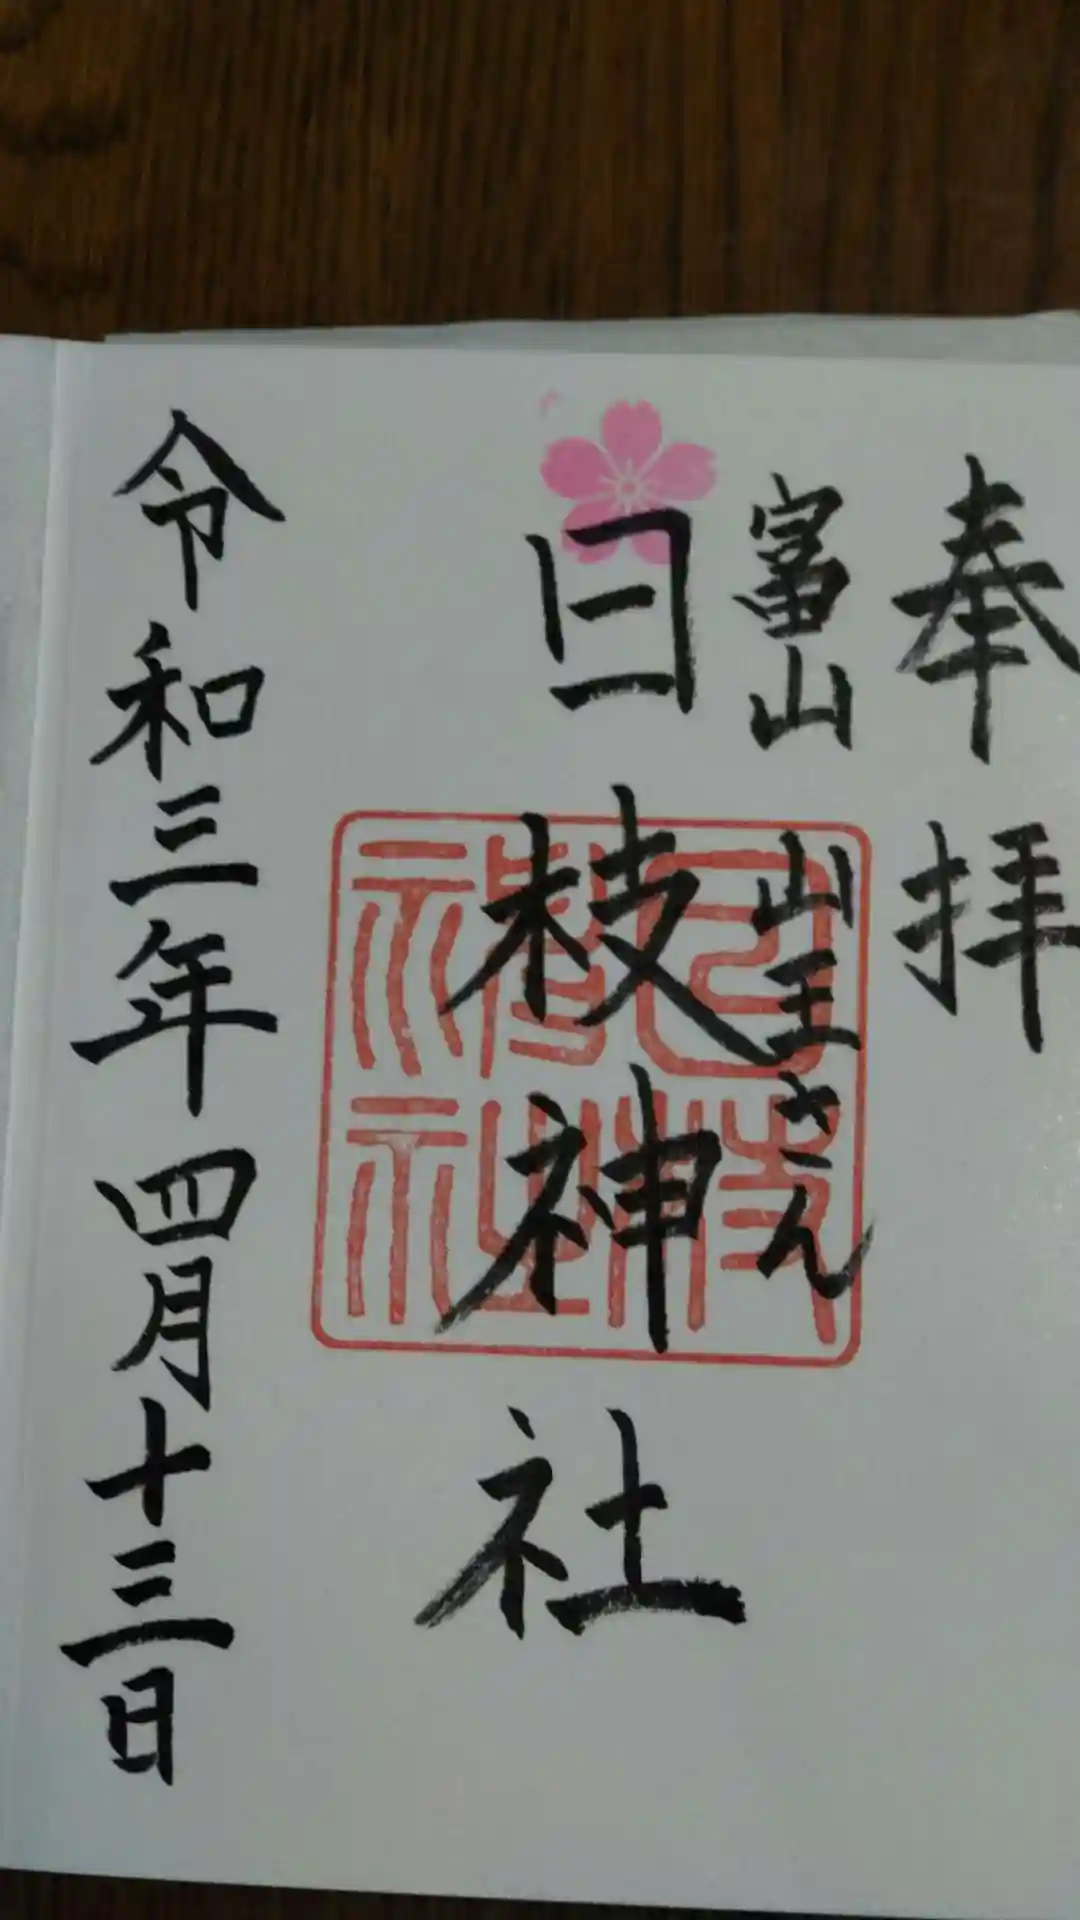 奉拝
富山山王さん
日枝神社
日枝神社
令和三年四月十三日